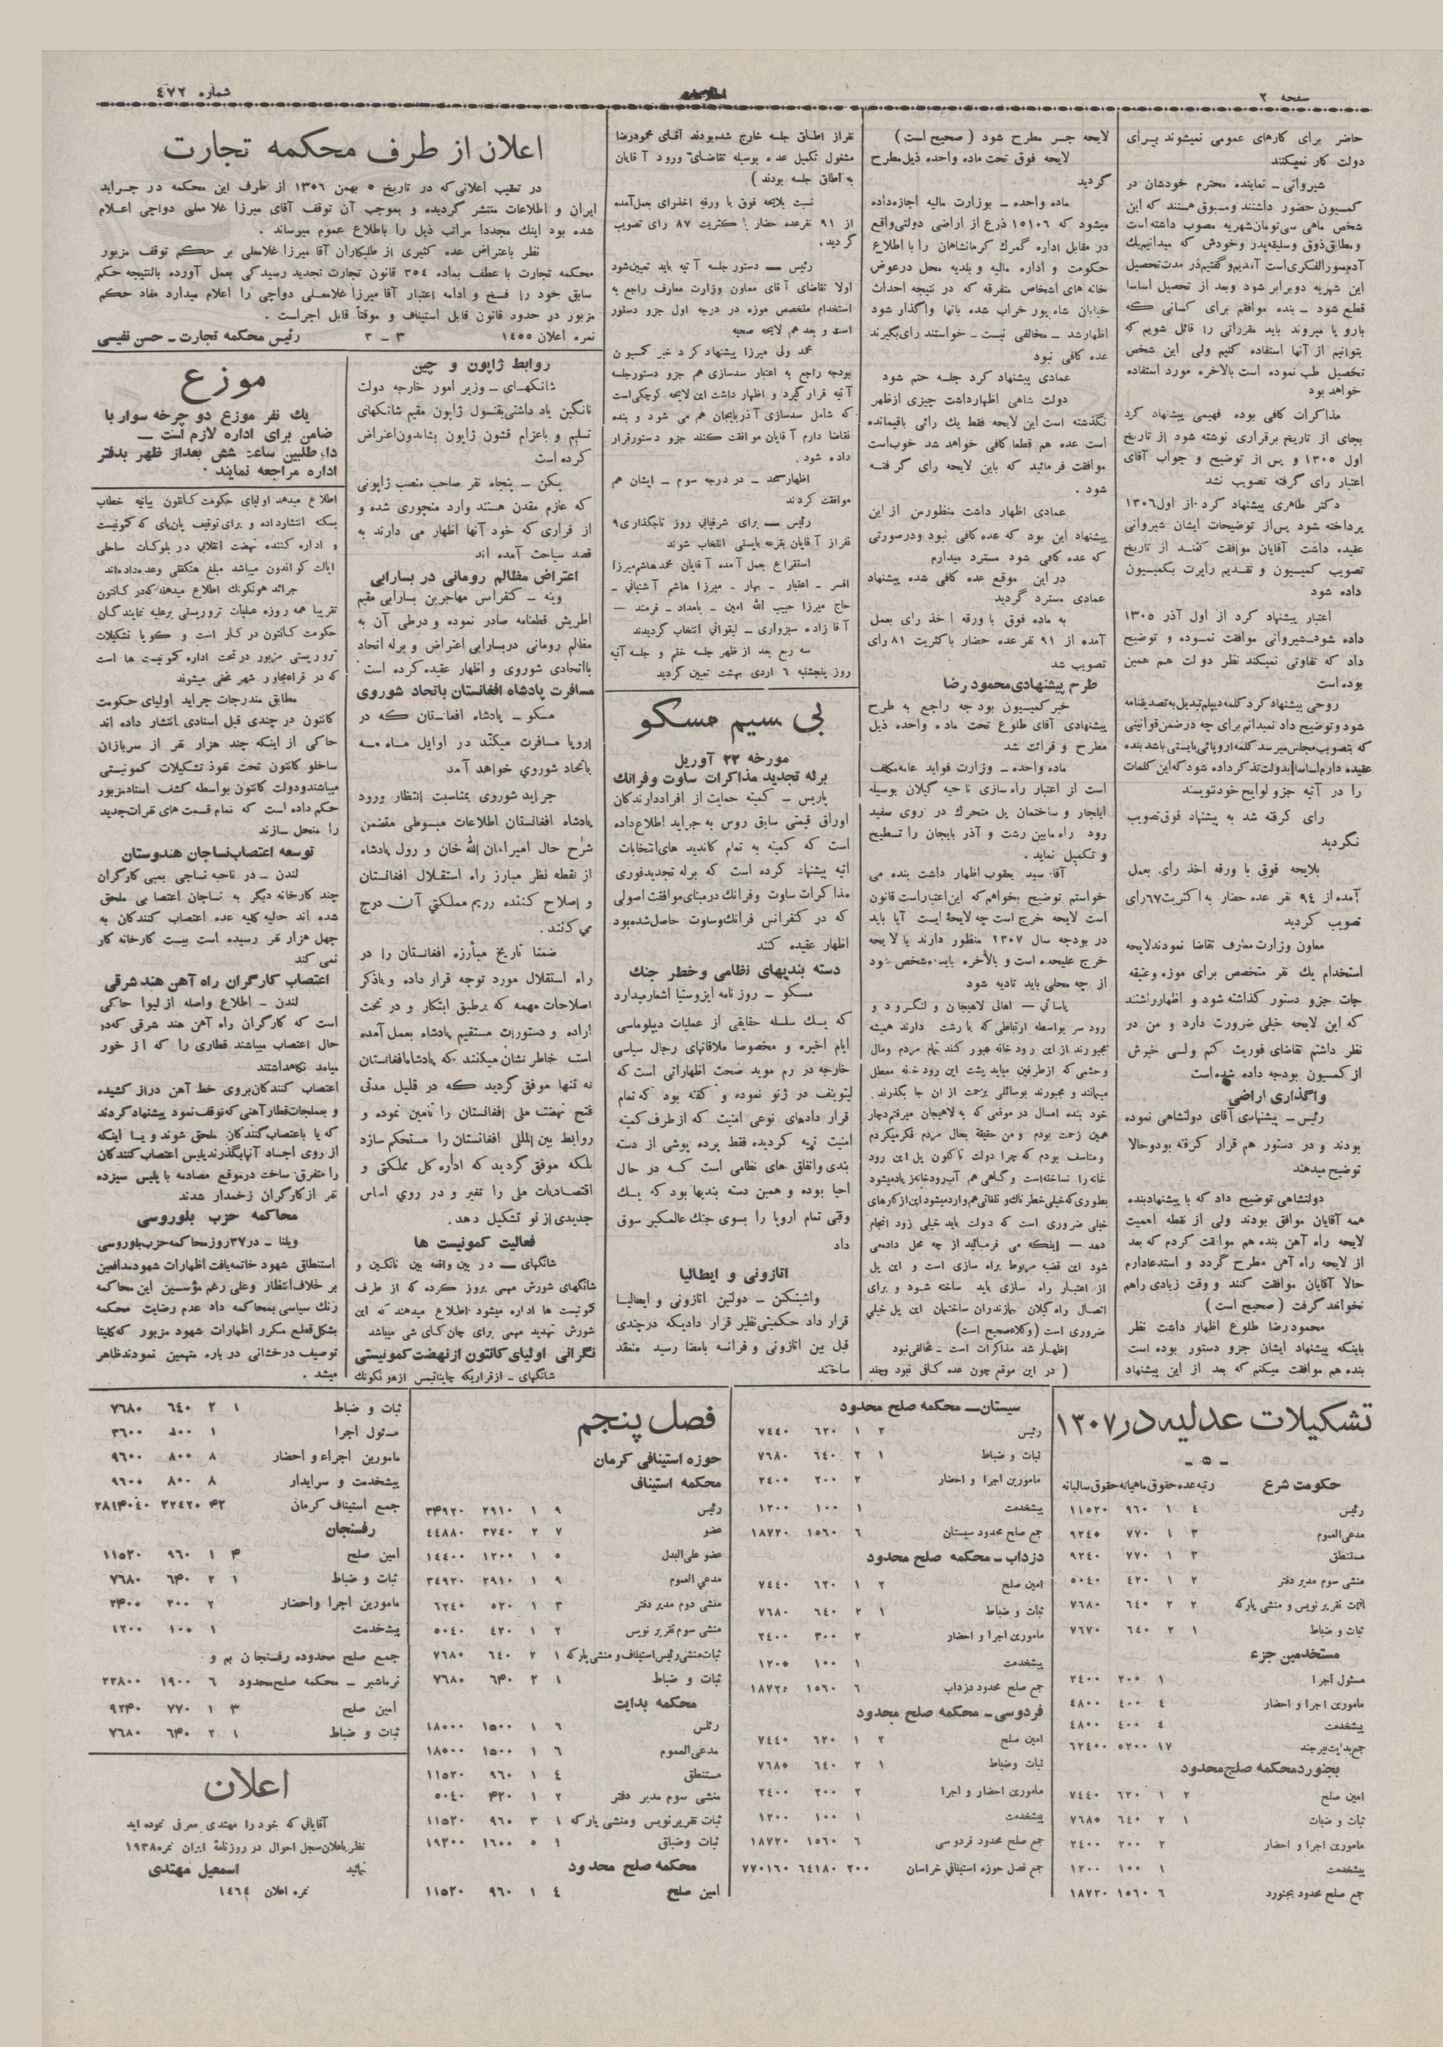 صفحه ۲
اطلاعات
شماره ٤٧٢
حاضر برای کارهای عمومی نمیشوند برای
دولت کار نمیکنند
شیروانی ــ نماینده محترم خودشان در
کمسیون حضور داشتند ومسبوق هستند که این
شخص ماهی سی‌تومان شهریه مصوب داشته است
ومطابق ذوق و سلیقه پدر وخودش که میدانیم یك
آدم منور الفکری است آمدیم و گفتیم در مدت تحصیل
این شهریه دوبرابر شود وبعد از تحصیل اساسا
قطع شود ــ بنده موافقم برای کسانی که
بارو پا میروند باید مقرراتی را قائل شویم که
بتوانیم از آنها استفاده کنیم ولی این شخص
تحصیل طب نموده است بالاخره مورد استفاده
خواهد بود
مذاکرات کافی بوده فهیمی پیشنهاد کرد
بجای از تاریخ برقراری نوشته شود از تاریخ
اول ۱۳۰۵ و پس از توضیح و جواب آقای
اعتبار رأی گرفته تصویب نشد
دکتر طاهری پیشنهاد کرد از اول ۱۳۰۶
پرداخته شود پس از توضیحات ایشان شیروانی
عقیده داشت آقایان موافقت کنند از تاریخ
تصویب کمیسیون و تقدیم راپرت بکمیسیون
داده شود
اعتبار پیشنهاد کرد از اول آذر ۱۳۰۵
داده شود شیروانی موافقت نموده و توضیح
داد که تفاوتی نمیکند نظر دولت هم همین
بوده است
روحی پیشنهاد کرد کلمه دیپلم تبدیل به تصدیقنامه
شود و توضیح داد نمیدانم برای چه درضمن قوانینی
که بتصویب مجلس میرسد کلمه اروپائی بایستی باشد بنده
عقیده دارم اساسا بدولت تذکر داده شود که این کلمات
را در آتیه جزو لوایح خود ننویسند
رای گرفته شد به پیشنهاد فوق تصویب
نگردید
بلایحه فوق با ورقه اخذ رای بعمل
آمده از ۹٤ نفر عده حضار به اکثریت ٦۷ رای
تصویب گردید
معاون وزارت معارف تقاضا نمودند لایحه
استخدام یك نفر متخصص برای موزه وعتیقه
جات جزو دستور گذاشته شود و اظهار داشتند
که این لایحه خیلی ضرورت دارد و من در
نظر داشتم تقاضای فوریت کنم ولی خبرش
از کمسیون بودجه داده شده است
واگذاری اراضی
رئیس ــ پیشنهادی آقای دولتشاهی نموده
بودند و در دستور هم قرار گرفته بود و حالا
توضیح میدهند
دولتشاهی توضیح داد که با پیشنهاد بنده
همه آقایان موافق بودند ولی از نقطه اهمیت
لایحه راه آهن بنده هم موافقت کردم که بعد
از لایحه راه آهن مطرح گردد و استدعا دارم
حالا آقایان موافقت کنند و وقت زیادی راهم
نخواهد گرفت ( صحیح است )
محمود رضا طلوع اظهار داشت نظر
باینکه پیشنهاد ایشان جزو دستور بوده است
بنده هم موافقت میکنم که بعد از این پیشنهاد
لایحه جسر مطرح شود ( صحیح است )
لایحه فوق تحت ماده واحده ذیل مطرح
گردید
ماده واحده ــ بوزارت مالیه اجازه داده
میشود که ۱۵۱۰۶ ذرع از اراضی دولتی واقع
در مقابل اداره گمرك کرمانشاهان را با اطلاع
حکومت و اداره مالیه و بلدیه محل درعوض
خانه های اشخاص متفرقه که در نتیجه احداث
خیابان شاه پور خراب شده بآنها واگذار شود
اظهار شد ــ مخالفی نیست ــ خواستند رای بگیرند
عده کافی نبود
عمادی پیشنهاد کرد جلسه ختم شود
دولت شاهی اظهار داشت چیزی از ظهر
نگذشته است این لایحه فقط یك رائی باقیمانده
است عده هم قطعا کافی خواهد شد خوب است
موافقت فرمائید که باین لایحه رای گرفته
شود .
عمادی اظهار داشت منظور من از این
پیشنهاد این بود که عده کافی نبود ودرصورتی
که عده کافی شود مسترد میدارم
در این موقع عده کافی شده پیشنهاد
عمادی مسترد گردید
به ماده فوق با ورقه اخذ رای بعمل
آمده از ۹۱ نفر عده حضار با کثریت ۸۱ رای
تصویب شد
طرح پیشنهادی محمود رضا
خبر کمسیون بودجه راجع به طرح
پیشنهادی آقای طلوع تحت ماده واحده ذیل
مطرح و قرائت شد
ماده واحده ــ وزارت فواید عامه مکلف
است از اعتبار راه سازی ناحیه گیلان بوسیله
ایلجار و ساختمان پل متحرك در روی سفید
رود راه مابین رشت و آذر بایجان را تسطیح
و تکمیل نماید .
آقا سید یعقوب اظهار داشت بنده می
خواستم توضیح بخواهم که این اعتبار است قانون
است لایحه خرج است چه لایحۀ ایست آیا باید
در بودجه سال ۱۳۰۷ منظور دارند یا لایحه
خرج علیحده است و بالاخره باید مشخص شود
از چه محلی باید تادیه شود
یاسائی ــ اهالی لاهیجان و لنگرود و
رود سر بواسطه ارتباطی که با رشت دارند همیشه
مجبورند از این رود خانه عبور کنند تمام مردم ومال
وحشمی که از طرفین میاید پشت این رود خانه معطل
میمانند و مجبورند بوسائلی بزحمت از آن جا بگذرند.
خود بنده امسال در موقعی که به لاهیجان میرفتم دچار
همین زحمت بودم و من حقیقة بحال مردم فکر میکردم
و متاسف بودم که چرا دولت تاکنون پل این رود
خانه را نساخته است و گاهی هم آب رودخانه زیاد میشود
بطوری که خیلی خطرناك و تلفاتی هم وارد میشود این از کارهای
خیلی ضروری است که دولت باید خیلی زود انجام
دهد ــ اینکه می فرمائید از چه محل داده می
شود این قضیه مربوط براه سازی است و این پل
از اعتبار راه سازی باید ساخته شود و برای
اتصال راه گیلان بمازندران ساختمان این پل خیلی
ضروری است (وکلاء صحیح است)
اظهار شد مذاکرات است ــ مخالفی نبود
( در این موقع چون عده کافی نبود وچند
نفر از اطاق جلسه خارج شده بودند آقای محمود رضا
مشغول تکمیل عده بوسیله تقاضای ورود آقایان
به اطاق جلسه بودند )
نسبت بلایحه فوق با ورقه اخذ رای بعمل آمده
از ۹۱ نفر عده حضار با کثریت ۸۷ رای تصویب
گردید.
رئیس ــ دستور جلسه آتیه باید تعیین شود
اولا تقاضای آقای معاون وزارت معارف راجع به
استخدام متخصص موزه در درجه اول جزو دستور
است و بعد هم لایحه صحیه
محمد ولی میرزا پیشنهاد کرد خبر کمسیون
بودجه راجع به اعتبار سدسازی هم جزو دستور جلسه
آتیه قرار گیرد و اظهار داشت این لایحه کوچکی است
که شامل سدسازی آذربایجان هم می شود و بنده
تقاضا دارم آقایان موافقت کنند جزو دستور قرار
داده شود .
اظهار شد ــ در درجه سوم ــ ایشان هم
موافقت کردند
رئیس ــ برای شرفیابی روز تاجگذاری ۹
نفر از آقایان بقرعه بایستی انتخاب شوند
استقراع بعمل آمده آقایان محمد هاشم میرزا
افسر ــ اعتبار ــ بهار ــ میرزا هاشم آشتیانی ــ
حاج میرزا حبیب الله امین ــ بامداد ــ فرمند ــ
آقا زاده سبزواری ــ لیقوانی انتخاب گردیدند
سه ربع بعد از ظهر جلسه ختم و جلسه آتیه
روز پنجشنبه ٦ اردی بهشت تعیین گردید
بی سیم مسکو
مورخه ۲۲ آوریل
برله تجدید مذاکرات ساوت وفرانك
پاریس ــ کمیته حمایت از افراد دارندگان
اوراق قیمتی سابق روس به جراید اطلاع داده
است که کمیته به تمام کاندید های انتخابات
آتیه پیشنهاد کرده است که برله تجدید فوری
مذاکرات ساوت وفرانك در مبنای موافقت اصولی
که در کنفرانس فرانك وساوت حاصل شده بود
اظهار عقیده کنند
دسته بندیهای نظامی وخطر جنك
مسکو ــ روزنامه ایزوستیا اشعار میدارد
که یك سلسله حقایقی از عملیات دیپلوماسی
ایام اخیره و مخصوصا ملاقاتهای رجال سیاسی
خارجه در رم موید صحت اظهاراتی است که
لیتوینف در ژنو نموده و گفته بود که تمام
قرار دادهای نوعی امنیت که از طرف کمیته
امنیت تهیه گردیده فقط پرده پوشی از دسته
بندی واتفاق های نظامی است که در حال
احیا بوده و همین دسته بندیها بود که یك
وقتی تمام اروپا را بسوی جنك عالمگیر سوق
داد
اتازونی و ایطالیا
واشینگتن ــ دولتین اتازونی و ایطالیا
قرار داد حکمیتی نظیر قرار دادیکه در چندی
قبل بین اتازونی و فرانسه بامضا رسید منعقد
ساختند
اعلان از طرف محکمه تجارت
در تعقیب اعلانی که در تاریخ ۵ بهمن ۱۳۵۶ از طرف این محکمه در جراید
ایران و اطلاعات منتشر گردیده و بموجب آن توقف آقای میرزا غلامعلی دواچی اعلام
شده بود اینك مجددا مراتب ذیل را باطلاع عموم میرساند .
نظر باعتراض عده کثیری از طلبکاران آقا میرزا غلامعلی بر حکم توقف مزبور
محکمه تجارت با عطف بماده ۳٥٤ قانون تجارت تجدید رسیدگی بعمل آورده بالنتیجه حکم
سابق خود را فسخ و ادامه اعتبار آقا میرزا غلامعلی دواچی را اعلام میدارد مفاد حکم
مزبور در حدود قانون قابل استیناف و موقتاً قابل اجراست .
نمره اعلان ۱٤٥٥ ۳ ــ ۳ رئیس محکمه تجارت ــ حسن نفیسی
روابط ژاپون و چین
شانگهای ــ وزیر امور خارجه دولت
نانگین یاد داشتی بقنسول ژاپون مقیم شانگهای
تسلیم و باعزام قشون ژاپون بشاندون اعتراض
کرده است
پکن ــ پنجاه نفر صاحب منصب ژاپونی
که عازم مقدن هستند وارد منچوری شده و
از قراری که خود آنها اظهار می دارند به
قصد سیاحت آمده اند
اعتراض مظالم رومانی در بسارابی
وینه ــ کنفراس مهاجرین بسارابی مقیم
اطریش قطعنامه صادر نموده و درطی آن به
مظالم رومانی در بسارابی اعتراض و برله اتحاد
بااتحادی شوروی و اظهار عقیده کرده است
مسافرت پادشاه افغانستان باتحاد شوروی
مسکو ــ پادشاه افغانستان که در
اروپا مسافرت میکند در اوایل ماه مه
باتحاد شوروی خواهد آمد
جراید شوروی بمناسبت انتظار ورود
پادشاه افغانستان اطلاعات مبسوطی متضمن
شرح حال امیر امان الله خان و رول پادشاه
از نقطه نظر مبارز راه استقلال افغانستان
و اصلاح کننده رزیم مملکتی آن درج
می کنند .
ضمنا تاریخ مبارزه افغانستان را در
راه استقلال مورد توجه قرار داده و باذکر
اصلاحات مهمه که برطبق ابتکار و در تحت
اراده و دستورات مستقیم پادشاه بعمل آمده
است خاطر نشان میکنند که پادشاه افغانستان
نه تنها موفق گردید که در قلیل مدتی
فتح نهضت ملی افغانستان را تامین نموده و
روابط بین المللی افغانستان را مستحکم سازد
بلکه موفق گردید که اداره کل مملکتی و
اقتصادیات ملی را تغیر و در روی اساس
جدیدی از نو تشکیل دهد.
فعالیت کمونیست ها
شانگهای ــ در بین واقعه بین نانگین و
شانگهای شورش مهمی بروز کرده که از طرف
کمونیست ها اداره میشود اطلاع میدهند که این
شورش تهدید مهمی برای چان کای شی میباشد
نگرانی اولیای کانتون از نهضت کمونیستی
شانگهای ــ از قراریکه چایناتیس از هونکونك
موزع
یك نفر موزع دو چرخه سوار با
ضامن برای اداره لازم است ــ
داوطلبین ساعت شش بعد از ظهر بدفتر
اداره مراجعه نمایند .
اطلاع میدهد اولیای حکومت کانتون بیانیه خطاب
بسکنه انتشار داده و برای توقیف پان‌پای که کمونیست
و اداره کننده نهضت انقلابی در بلوکات ساحلی
ایالت کواندون میباشد مبلغ هنگفتی وعده داده اند
جرائد هونکونك اطلاع میدهند که در کانتون
تقریبا همه روزه عملیات تروریستی برعلیه نمایندگان
حکومت کانتون در کار است و گویا تشکیلات
تروریستی مزبور در تحت اداره کمونیست ها است
که در قراء مجاور شهر مخفی میشوند
مطابق مندرجات جراید اولیای حکومت
کانتون در چندی قبل اسنادی انتشار داده اند
حاکی از اینکه چند هزار نفر از سربازان
ساخلو کانتون تحت نفوذ تشکیلات کمونیستی
میباشند ودولت کانتون بواسطه کشف اسناد مزبور
حکم داده است که تمام قسمت های نفرات جدید
را منحل سازند
توسعه اعتصاب نساجان هندوستان
لندن ــ در ناحیه نساجی بمبی کارگران
چند کارخانه دیگر به نساجان اعتصابی ملحق
شده اند حالیه کلیه عده اعتصاب کنندگان به
چهل هزار نفر رسیده است بیست کارخانه کار
نمی کند
اعتصاب کارگران راه آهن هند شرقی
لندن ــ اطلاع واصله از لیوا حاکی
است که کارگران راه آهن هند شرقی که در
حال اعتصاب میباشند قطاری را که از خور
میامد نگاهداشتند
اعتصاب کنندگان بروی خط آهن دراز کشیده
و بعملجات قطار آهنی که توقف نمود پیشنهاد کردند
که یا با اعتصاب کنندگان ملحق شوند و یا اینکه
از روی اجساد آنها بگذرند پلیس اعتصاب کنندگان
را متفرق ساخت در موقع مصادمه با پلیس سیزده
نفر از کارگران زخمدار شدند
محاکمه حزب بلوروسی
ویلنا ــ در ۳۷ روز محاکمه حزب بلوروسی
استنطاق شهود خاتمه یافت اظهارات شهود مدافعین
بر خلاف انتظار وعلی رغم مؤسسین این محاکمه
رنك سیاسی بمحاکمه داد عدم رضایت محکمه
بشکل قطع مکرر اظهارات شهود مزبور که کلیتا
توصیف درخشانی در باره متهمین نمودند ظاهر
میشد .
تشکیلات عدلیه در ۱۳۰۷
ــ ۵ ــ
حکومت شرع رتبه عده حقوق ماهیانه حقوق سالیانه
رئیس ٤ ۱ ۹٦۰ ۱۱۵۲۰
مدعی العموم ۳ ۱ ۷۷۰ ۹۲٤۵
مستنطق ۳ ۱ ۷۷۰ ۹۲٤۰
منشی سوم مدیر دفتر ۲ ۱ ٤۲۰ ۵۰٤۰
ثبات تقریر نویس و منشی پارکه ۲ ۲ ٦٤۰ ۷٦۸۰
ثبات و ضباط ۱ ۲ ٦٤۰ ۷٦۷۰
مستخدمین جزء
مسئول اجرا ۱ ۲۰۰ ۲٤۰۰
مامورین اجرا و احضار ٤ ٤۰۰ ٤۸۰۰
پیشخدمت ٤ ٤۰۰ ٤۸۰۰
جمع بدایت بیرجند ۱۷ ۵۲۰۰ ٦۲٤۰۰
بجنورد محکمه صلح محدود
امین صلح ۲ ۱ ٦۲۰ ۷٤٤۰
ثبات و ضبات ۱ ۲ ٦٤۰ ۷٦۸۵
مامورین اجرا و احضار ۲ ۲۰۰ ۲٤۰۰
پیشخدمت ۱ ۱۰۰ ۱۲۰۰
جمع صلح محدود بجنورد ٦ ۱۵٦۰ ۱۸۷۲۰
سیستان ــ محکمه صلح محدود
رئیس ۲ ۱ ٦۲۰ ۷٤٤۰
ثبات و ضباط ۱ ۲ ٦٤۰ ۷٦۸۰
مامورین اجرا و احضار ۲ ۲۰۰ ۲٤۰۰
پیشخدمت ۱ ۱۰۰ ۱۲۰۰
جمع صلح محدود سیستان ٦ ۱۵٦۰ ۱۸۷۲۰
دزداب ــ محکمه صلح محدود
امین صلح ۲ ۱ ٦۲۰ ۷٤٤۰
ثبات و ضباط ۱ ۲ ٦٤۰ ۷٦۸۰
مامورین اجرا و احضار ۲ ۳۰۰ ۲٤۰۰
پیشخدمت ۱ ۱۰۰ ۱۲۰۰
جمع صلح محدود دزداب ٦ ۱۵٦۰ ۱۸۷۲۰
فردوسی ــ محکمه صلح محدود
امین صلح ۲ ۱ ٦۲۰ ۷٤٤۰
ثبات وضباط ۱ ۲ ٦٤۰ ۷٦۸۵
مامورین احضار و اجرا ۲ ۲۰۰ ۲٤۰۰
پیشخدمت ۱ ۱۰۰ ۱۲۰۰
جمع صلح محدود فردوسی ٦ ۱۵٦۰ ۱۸۷۲۰
جمع فصل حوزه استینافی خراسان ۲۰۰ ٦٤۱۸۰ ۷۷۰۱٦۰
فصل پنجم
حوزه استینافی کرمان
محکمه استیناف
رئیس ۹ ۱ ۲۹۱۰ ۳۴۹۲۰
عضو ۷ ۲ ۳۷٤۰ ٤٤۸۸۰
عضو علی البدل ۵ ۱ ۱۲۰۰ ۱٤٤۰۰
مدعی العموم ۹ ۱ ۲۹۱۰ ۳۴۹۲۰
منشی دوم مدیر دفتر ۳ ۱ ۵۲۰ ٦۲٤۰
منشی سوم تقریر نویس ۲ ۱ ٤۲۰ ۵۰٤۰
ثبات منشی رئیس استیناف و منشی پارکه ۱ ۲ ٦٤۰ ۷٦۸۰
ثبات و ضباط ۱ ۲ ٦۴۰ ۷٦۸۰
محکمه بدایت
رئیس ٦ ۱ ۱۵۰۰ ۱۸۰۰۰
مدعی العموم ٦ ۱ ۱۵۰۰ ۱۸۰۰۰
مستنطق ٤ ۱ ۹٦۰ ۱۱۵۲۰
منشی سوم مدیر دفتر ۲ ۱ ۴۲۰ ۵۰٤۰
ثبات تقریر نویس ومنشی پارکه ۱ ۳ ۹٦۰ ۱۱۵۲۰
ثبات وضباق ۱ ۵ ۱٦۰۰ ۱۹۲۰۰
محکمه صلح محدود
امین صلح ٤ ۱ ۹٦۰ ۱۱۵۲۰
ثبات و ضباط ۱ ۲ ٦٤۰ ۷٦۸۰
مسئول اجرا ۱ ۳۰۰ ۳٦۰۰
مامورین اجراء و احضار ۸ ۸۰۰ ۹٦۰۰
پیشخدمت و سرایدار ۸ ۸۰۰ ۹٦۰۰
جمع استیناف کرمان ۴۲ ۲۲٤۲۰
رفسنجان
امین صلح ۴ ۱ ۹٦۰ ۱۱۵۲۰
ثبات و ضباط ۱ ۲ ٦۴۰ ۷٦۸۰
مامورین اجرا واحضار ۲ ۲۰۰ ۲۴۰۰
پیشخدمت ۱ ۱۰۰ ۱۲۰۰
جمع صلح محدوده رفسنجان بم و
نرماشیر ــ محکمه صلح محدود ٦ ۱۹۰۰ ۲۲۸۰۰
امین صلح ۳ ۱ ۷۷۰ ۹۲۴۰
ثبات و ضباط ۱ ۲ ٦۴۰ ۷٦۸۰
اعلان
آقایانی که خود را مهتدی معرفی نموده اید
نظر باعلان سجل احوال در روزنامۀ ایران نمره ۱۹۳۸
نمائید اسمعیل مهتدی
نمره اعلان ۱٤٦٤